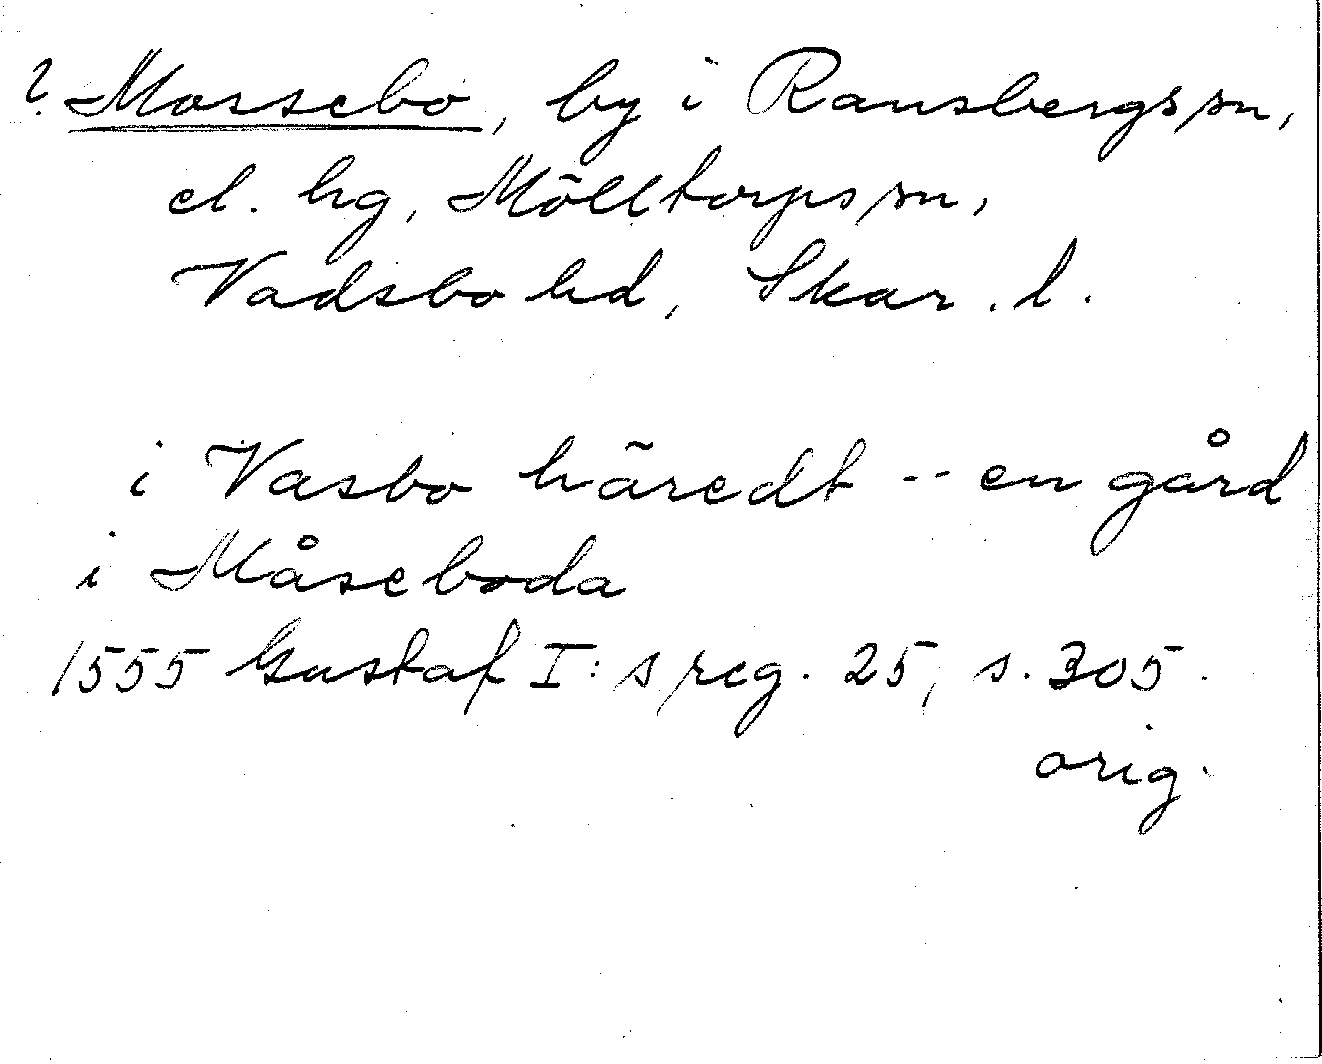 ? Mossebo, by i Ransbergs sn,
el. hg, Mölltorps sn,
Vadsbo hd, Skar. l.
i Vasbo häredt -- en gård
i Måseboda
1555 Gustaf I:s reg. 25, s. 305.
orig.